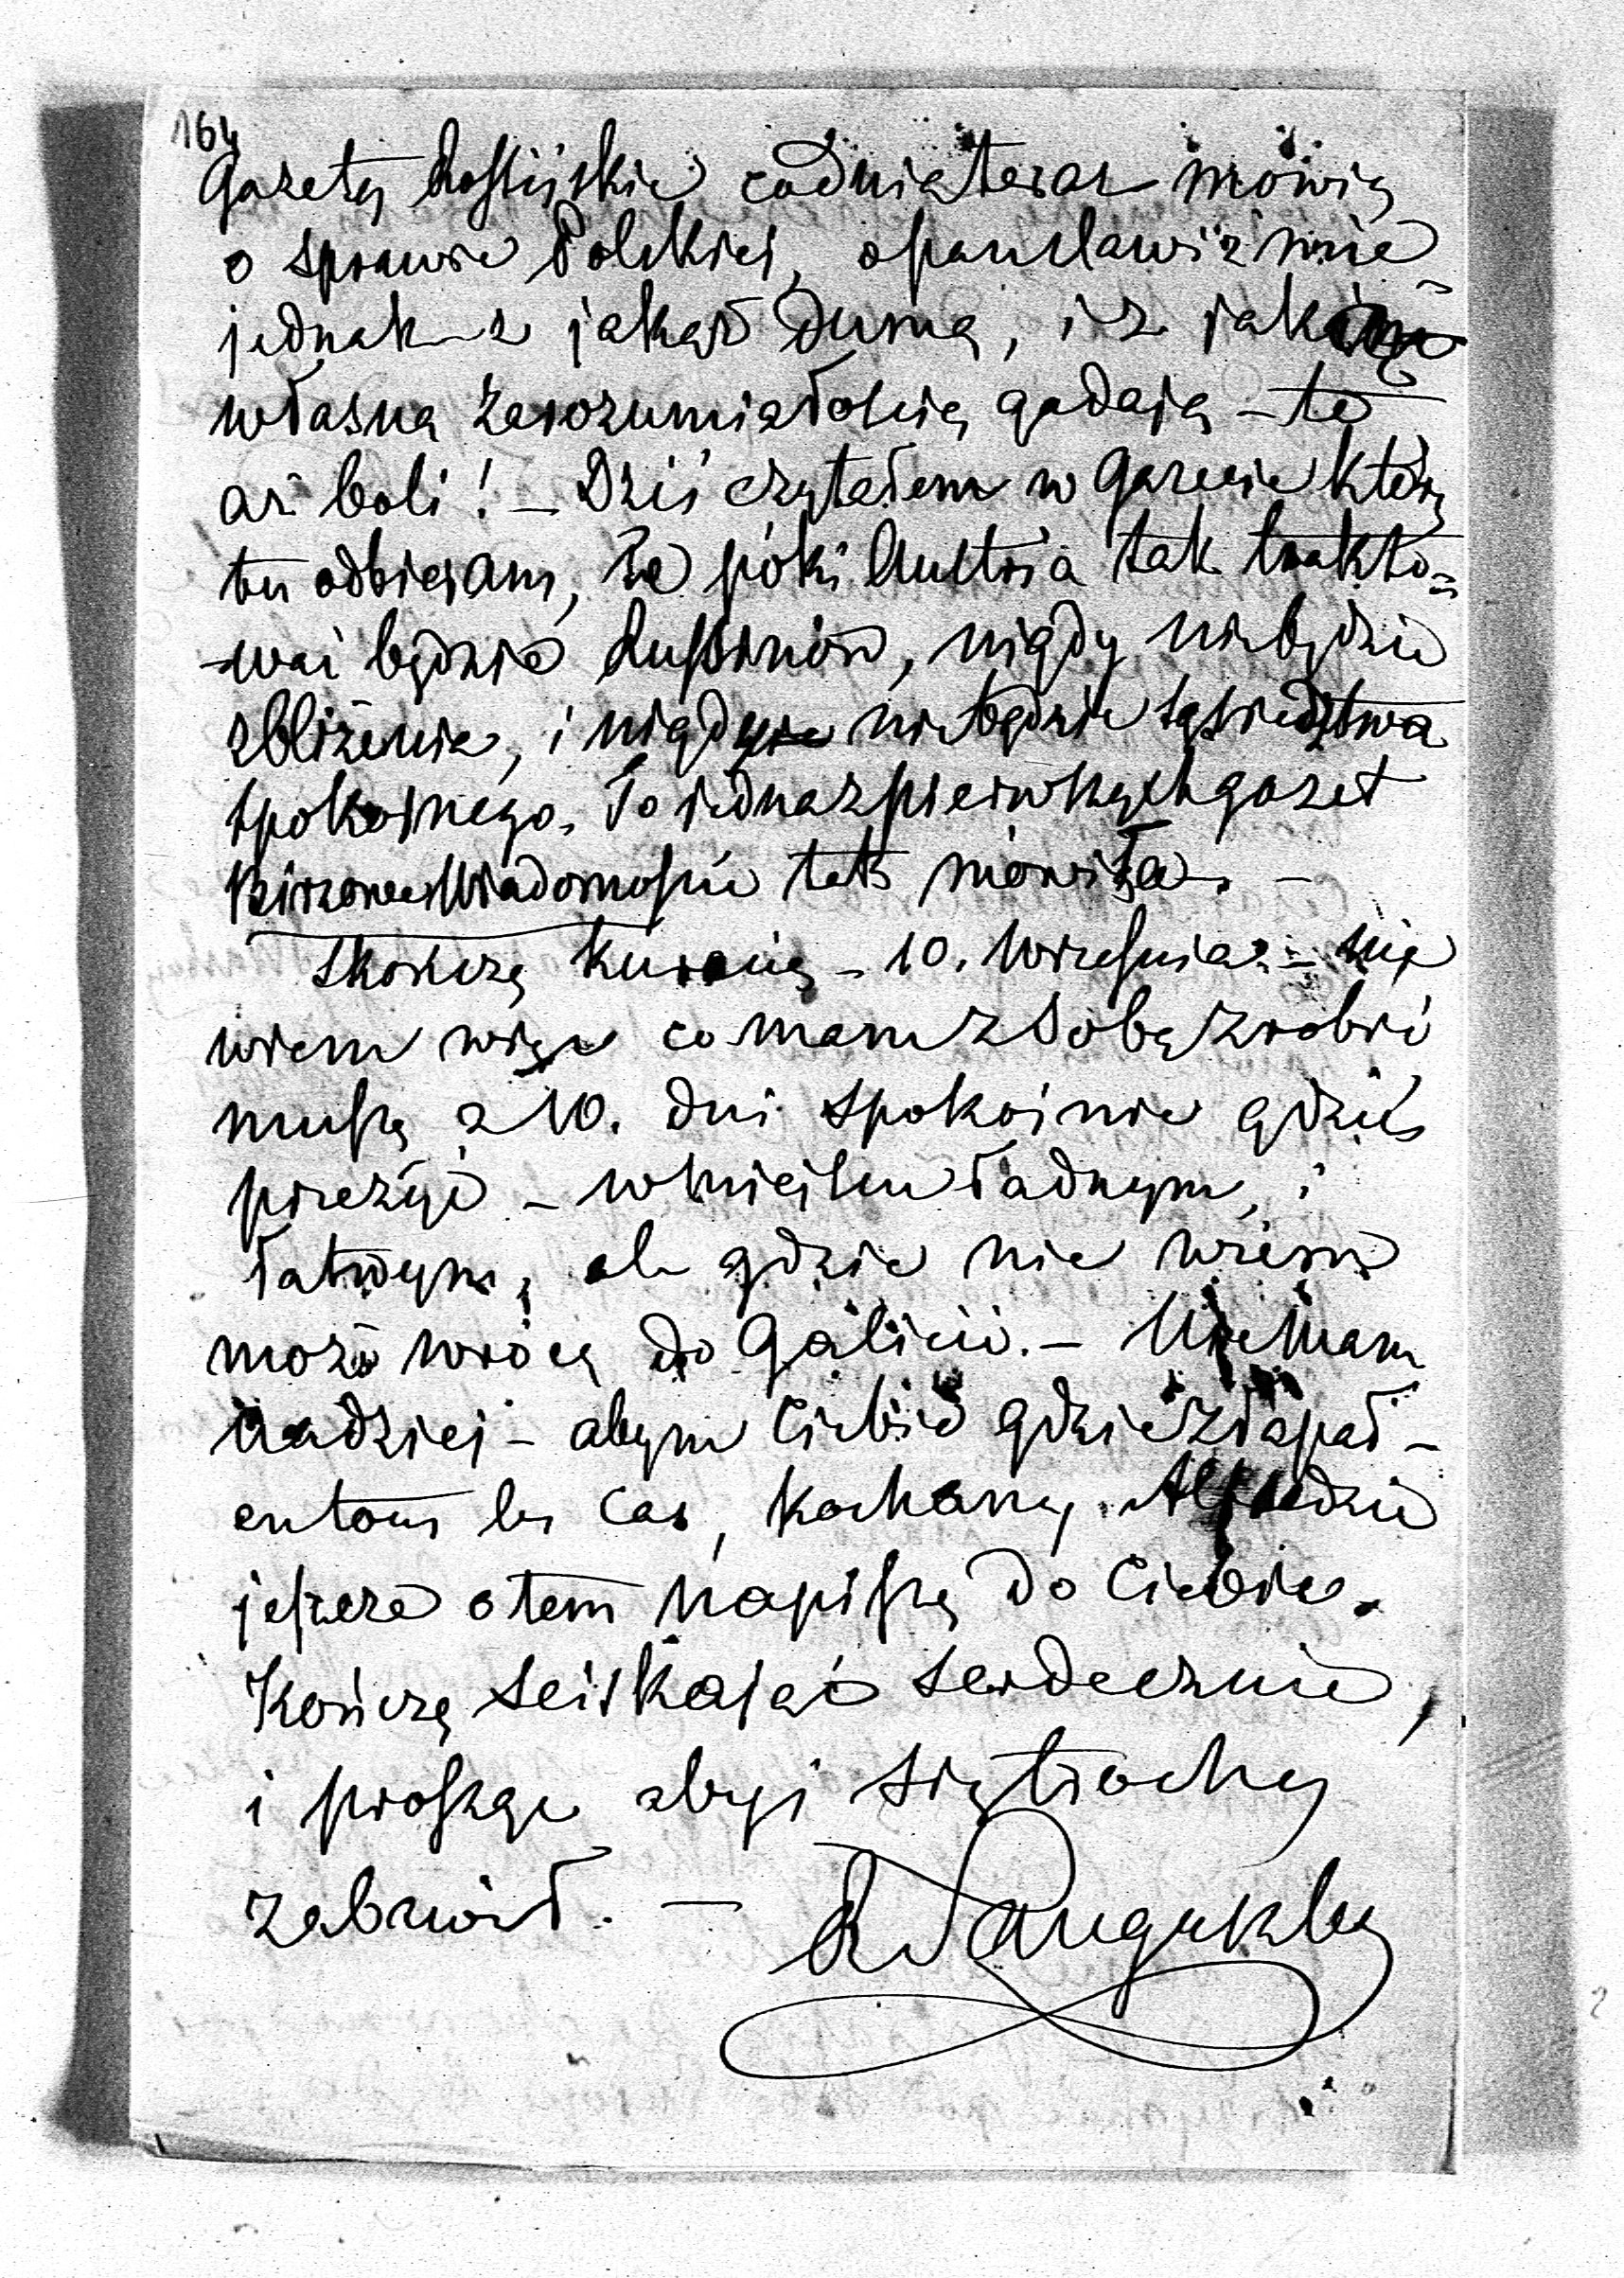 164
Gazety Rossijskie codnia teraz mówią
o sprawie Polskiej, o panslawizmie
jednak z jakąś dumą, i z jakąś
własną zarozumiałością gadają – to
aż boli! – Dziś czytałem w Gazecie którą
tu odbieram, że póki Austria tak trakto-
-wać będzie Russinów, nigdy niebędzie
zbliżenia, i nigdy niebędzie sąsiedztwa
spokojnego. To jedna z pierwszych gazet
Birżowe Wiadomości tak mówiła. –
Skończę kuracią – 10. Września – nie
wiem więc co mam z Sobą zrobić
muszę z 10. dni spokojnie gdzieś
przeżyć – w miejscu ładnym, i
łatwym, ale gdzie nie wiem
może wrócę do Galicii. – Nie Mam
nadziej – abym Ciebie gdzie złapał –
en tous les cas, kochany Alfredzie
jeszcze o tem napiszę do Ciebie.
Kończę sciskając serdecznie,
i proszę abyś się trochę
zabawił. – R Sanguszko